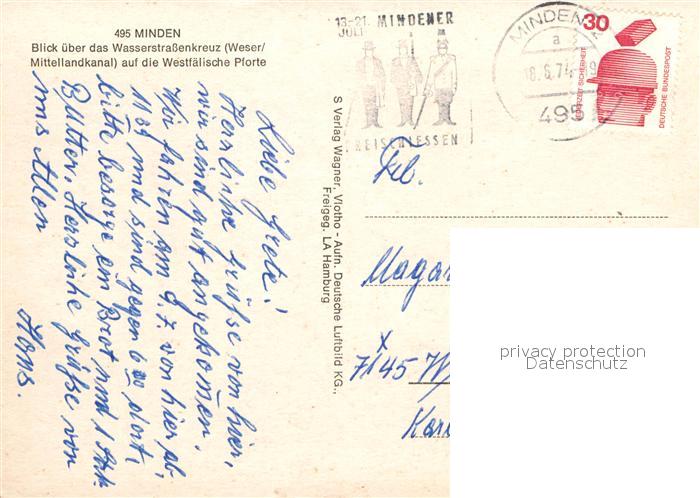 495 MINDEN
Blick über das Wasserstraßenkreuz (Weser/
Mittellandkanal) auf die Westfälische Pforte
13.-21. MINDENER
JULI
FREISCHIESSEN
MINDEN
a
18.6.74
495
30
JEDERZEIT SICHERHEIT
DEUTSCHE BUNDESPOST
S Verlag Wagner, Vlotho - Aufn. Deutsche Luftbild KG.,
Freigeg. LA Hamburg
Liebe Grete!
Herrliche Grüße von hier,
wir sind gut angekommen.
Wir fahren am 9.7. von hier ab,
und sind gegen 6 dort,
bitte besorge ein Brot und 1
Butter. Herzliche Grüße von
uns Allen
Hans.
Frl.
7145
privacy protection
Datenschutz